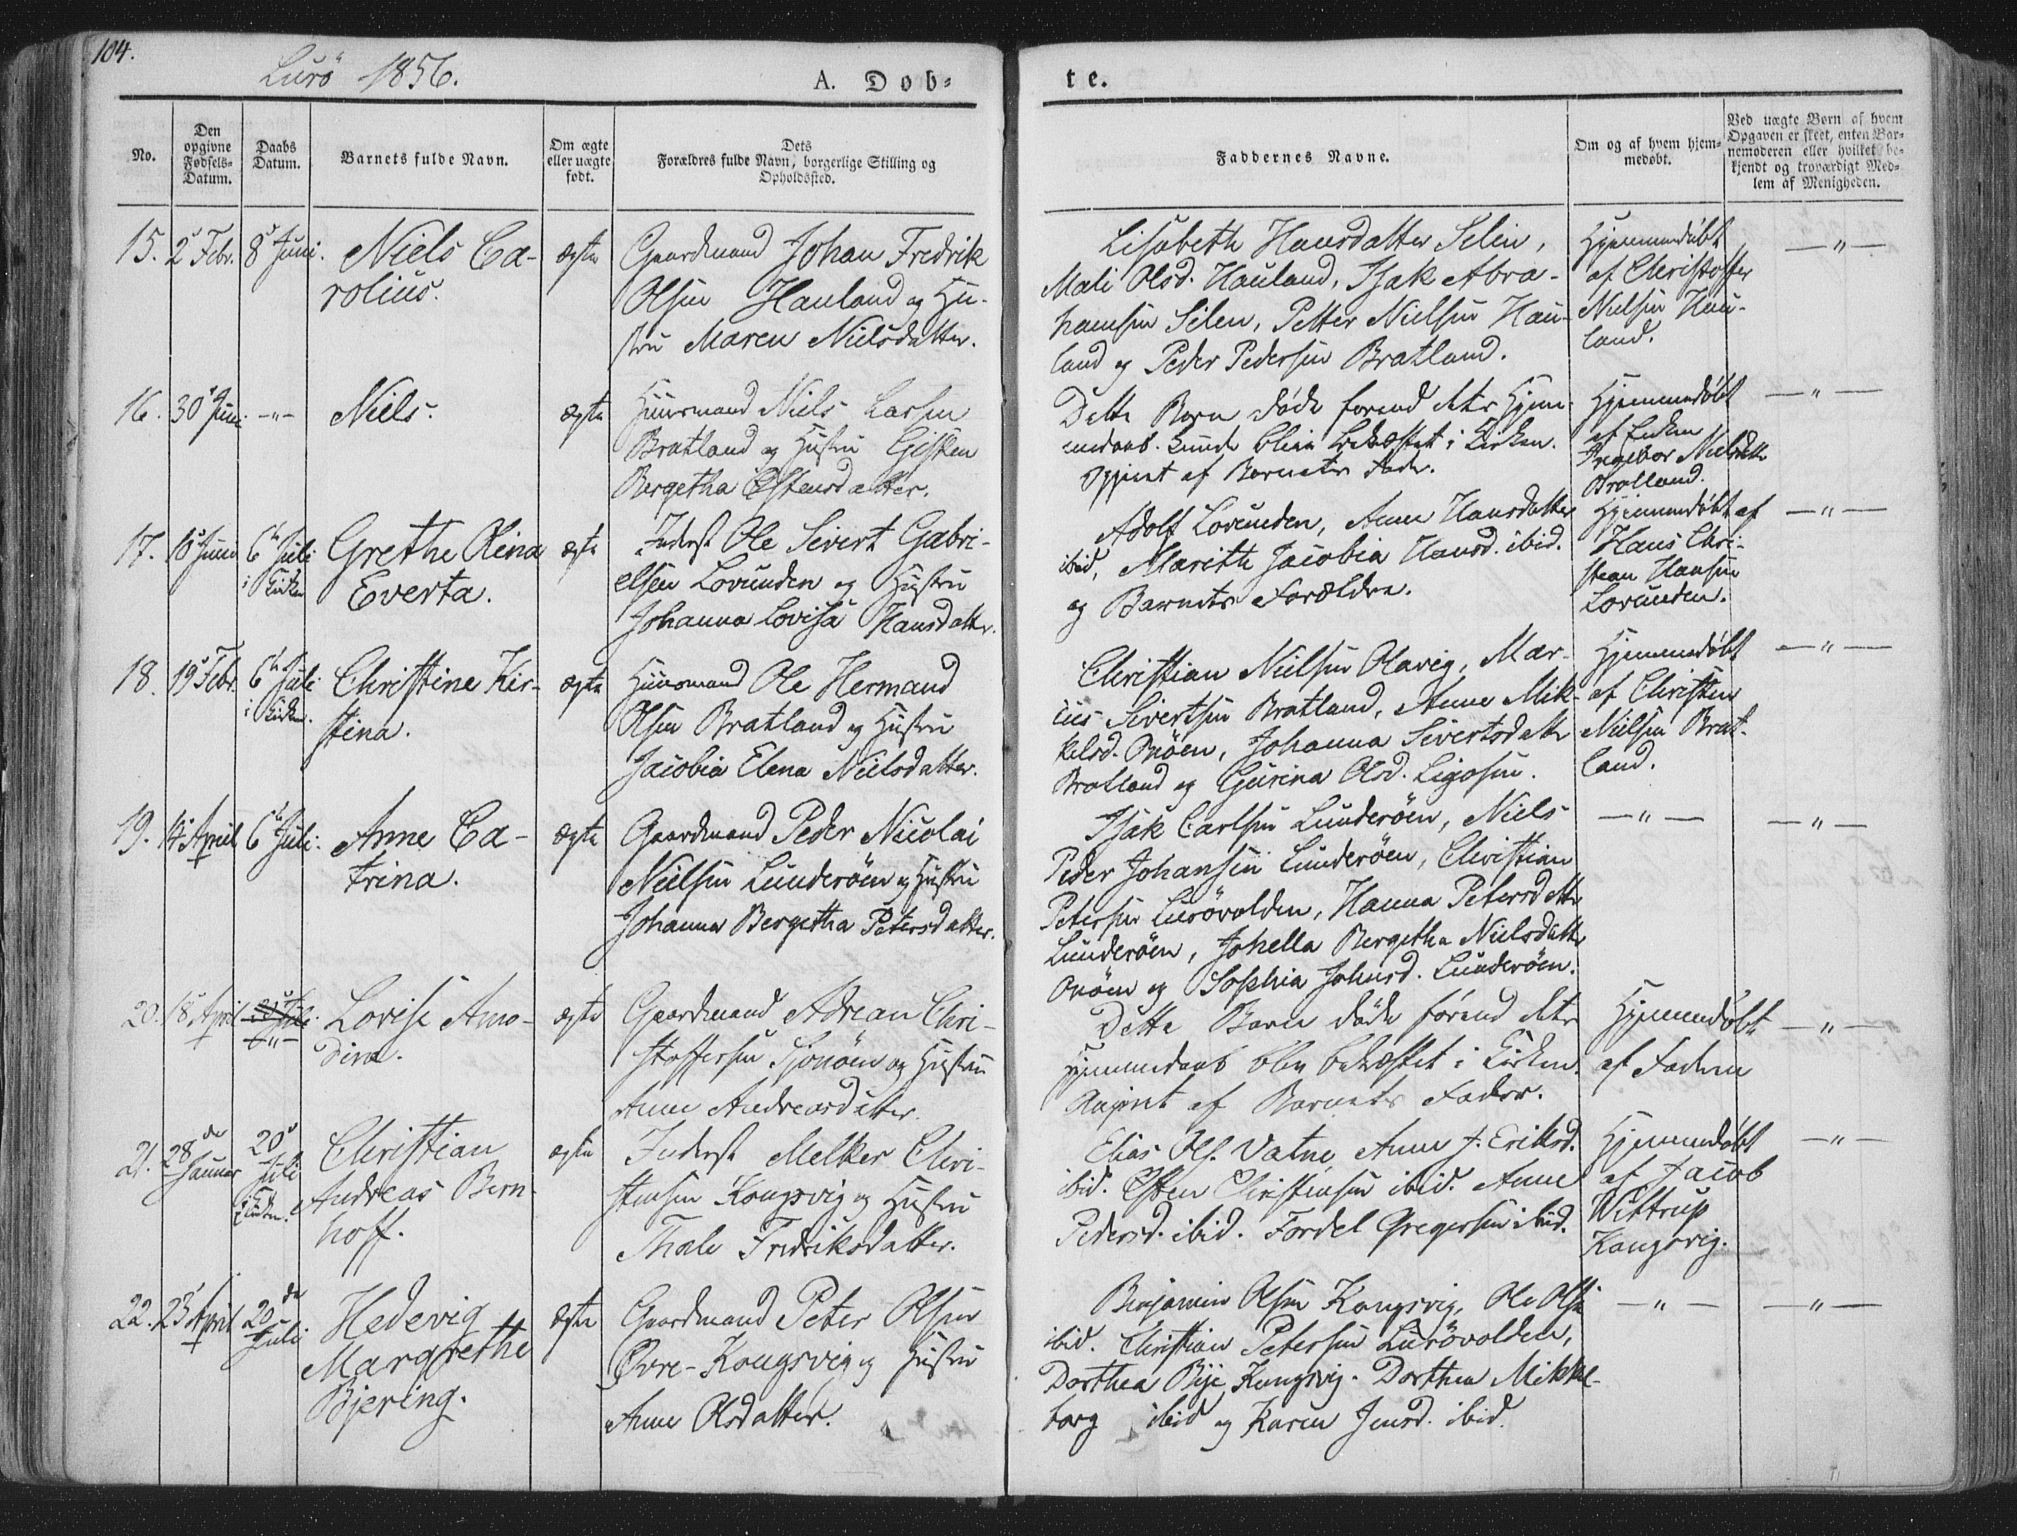 104.
Lurö 1856.
A. Döb-
te.
No.
Den
opgivne
Fødsels-
Datum.
Daabs
Datum.
Barnets fulde Navn.
Om ægte
eller uægte
født.
Dets
Forældres fulde Navn, borgerlige Stilling og
Opholdssted.
Faddernes Navne.
Om og af hvem hjem-
medøbt.
Ved uægte Børn af hvem
Opgaven er skeet, enten Bar-
nemoderen eller hvilket be-
kjendt og troværdigt Med-
lem af Menigheden.
15. 2 Febr. 8 Juni. Niels Ca-
rolius.
ægte
Gaardmand Johan Fredrik
Olsen Hauland og Hu-
stru Maren Nielsdatter.
Lisabeth Hansdatter Selen,
Mali Olsd. Hauland, Isak Abra-
hamsen Selen, Petter Nielsen Hau-
land og Peder Pedersen Bratland.
Hjemmedøbt
af Christoffer
Nielsen Hau-
land.
— „ —
16. 30 Juni. — „ — Niels.
ægte
Huusmand Niels Larsen
Bratland og Hustru Gjesken
Bergetha Estensdatter.
Dette Barn døde forend dets Hjem-
medaab kunde blive bekræftet i Kirken.
Opgivet af Barnets Fader.
Hjemmedøbt
af Enken
Ingebor Nielsdtr
Bratland.
— „ —
17. 10 Juni 6 Juli
i Kirken
Grethe Olina
Everta.
ægte
Inderst Ole Sivert Gabri-
elsen Lovunden og Hustru
Johanna Lovisa Hansdatter.
Adolf Lovunden, Anne Hansdatter
ibid, Marith Jacobia Hansd. ibid.
og Barnets Forældre.
Hjemmedøbt af
Hans Chri-
stian Hansen
Lovunden.
— „ —
18. 19 Febr. 6 Juli
i Kirken.
Christine Kir-
stina.
ægte
Huusmand Ole Hermand
Olsen Bratland og Hustru
Jacobia Elena Nielsdatter.
Christian Nielsen Olavig, Mar-
cus Sivertsen Bratland, Anne Mik-
kelsd. Onöen, Johanna Sivertsdatter
Bratland og Gjurina Olsd.
Hjemmedøbt
af Christen
Nielsen Brat-
land.
— „ —
19. 14 April 6 Juli. Anne Ca-
trina.
ægte
Gaardmand Peder Nicolai
Nielsen Lunderöen og Hustru
Johanna Bergetha Petersdatter.
Isak Carlsen Lunderöen, Niels
Peder Johansen Lunderöen, Christian
Petersen Lurövolden, Hanna Petersdatter
Lunderöen, Johella Bergetha Nielsdatter
Onöen og Sophia Johnsd. Lunderöen.
— „ —
— „ —
20. 18 April
— „ —
Lovise Amo-
dina.
ægte
Gaardmand Adrean Chri-
stoffersen Sjonöen og Hustru
Anne Andreasdatter.
Dette Barn døde førend dets
Hjemmedaab blev bekræftet i Kirken.
Angivet af Barnets Fader.
Hjemmedøbt
af Faderen
— „ —
21. 28de
Januar
20
Juli
i Kirken.
Christian
Andreas Bern-
hoff.
ægte
Inderst Melker Chri-
stensen Kongsvig og Hustru
Thale Fredriksdatter.
Elias Ols. Vatne, Anne J. Eriksd.
ibid. Esten Christensen ibid. Anne
Pedersd. ibid. Fordel Gregersen ibid.
Hjemmedøbt
af Jacob
Wittrup
Kongsvig.
— „ —
22. 23 April 20de
Juli
Hedevig
Margrethe
Bjering.
ægte
Gaardmand Peter Olsen
Øvre-Kongsvig og Hustru
Anne Olsdatter.
Benjamin Olsen Kongsvig, Ole Olsen
ibid. Christian Petersen Lurövolden,
Dorthea Bije Kongsvig. Dorthea Mikkel-
borg ibid og Karen Jensd. ibid.
— „ —
— „ —